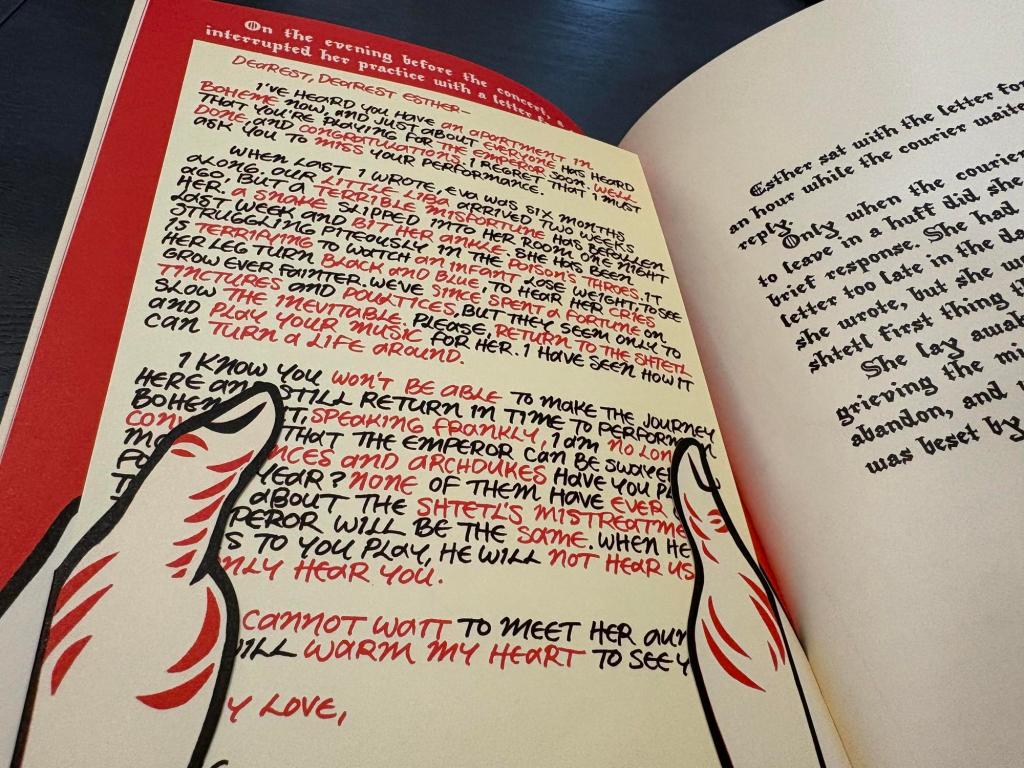 On the evening before the concert, a
interrupted her practice with a letter
DEAREST, DEAREST ESTHER—
I'VE HEARD YOU HAVE AN APARTMENT IN
BOHEME NOW, AND JUST ABOUT EVERYONE HAS HEARD
THAT YOU'RE PLAYING FOR THE EMPEROR SOON. WELL
DONE AND CONGRATULATIONS. I REGRET THAT I MUST
ASK YOU TO MISS YOUR PERFORMANCE.
WHEN LAST I WROTE, EVA WAS SIX MONTHS
ALONG. OUR LITTLE LIBA ARRIVED TWO WEEKS
AGO. BUT A TERRIBLE MISFORTUNE HAS BEFALLEN
HER. A SNAKE SLIPPED INTO HER ROOM ONE NIGHT
LAST WEEK AND BIT HER ANKLE. SHE HAS BEEN
STRUGGLING PITEOUSLY IN THE POISON'S THROES. IT
IS TERRIFYING TO WATCH AN INFANT LOSE WEIGHT, TO SEE
HER LEG TURN BLACK AND BLUE, TO HEAR HER CRIES
GROW EVER FAINTER. WE'VE SINCE SPENT A FORTUNE ON
TINCTURES AND POULTICES, BUT THEY SEEM ONLY TO
SLOW THE INEVITABLE. PLEASE, RETURN TO THE SHTETL
AND PLAY YOUR MUSIC FOR HER. I HAVE SEEN HOW IT
CAN TURN A LIFE AROUND.
I KNOW YOU WON'T BE ABLE TO MAKE THE JOURNEY
HERE AND STILL RETURN IN TIME TO PERFORM
BOHEM IT. SPEAKING FRANKLY, I AM NO LON
CONV THAT THE EMPEROR CAN BE SWAYE
NCES AND ARCHDUKES HAVE YOU PL
YEAR? NONE OF THEM HAVE EVER
ABOUT THE SHTETL'S MISTREATME
PEROR WILL BE THE SAME. WHEN HE
S TO YOU PLAY, HE WILL NOT HEAR US
NLY HEAR YOU.
CANNOT WAIT TO MEET HER AUN
ILL WARM MY HEART TO SEE Y
Y LOVE,
Esther sat with the letter for
an hour while the courier waite
reply.
Only when the courier
to leave in a huff did she
brief response. She had
letter too late in the da
she wrote, but she w
shtetl first thing t
She lay awak
grieving the mi
abandon, and
was beset by